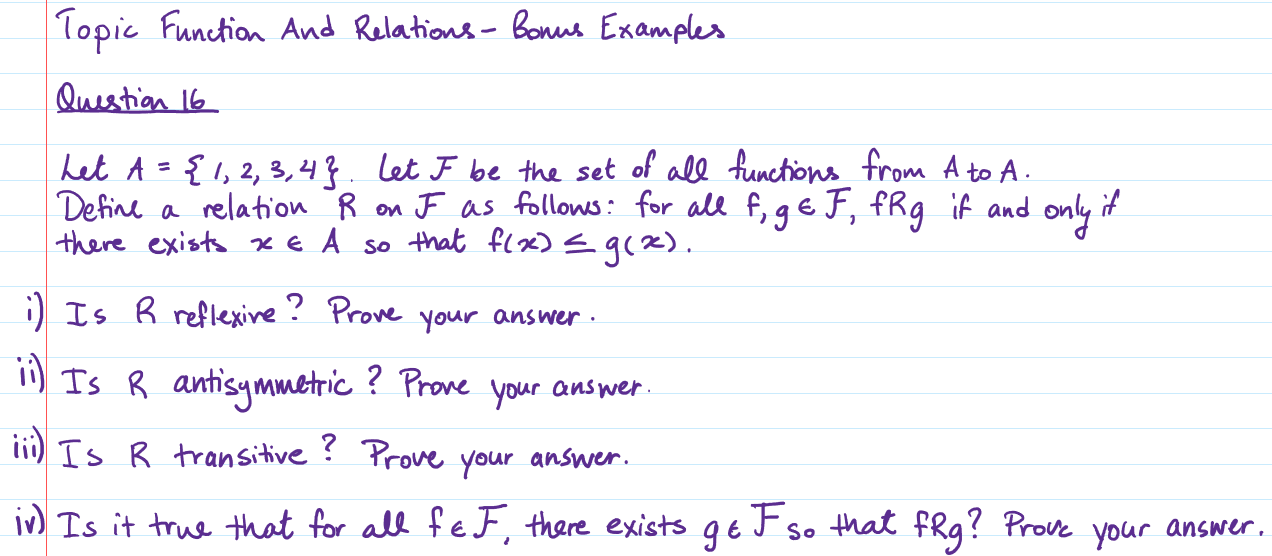 Topic Function And Relations - Bonus Examples
Question 16
Let A = {1, 2, 3, 4}. Let F be the set of all functions from A to A.
Define a relation R on F as follows: for all f, g ∈ F, fRg if and only if
there exists x ∈ A so that f(x) ≤ g(x).
i) Is R reflexive? Prove your answer.
ii) Is R antisymmetric? Prove your answer.
iii) Is R transitive? Prove your answer.
iv) Is it true that for all f ∈ F, there exists g ∈ F so that fRg? Prove your answer.